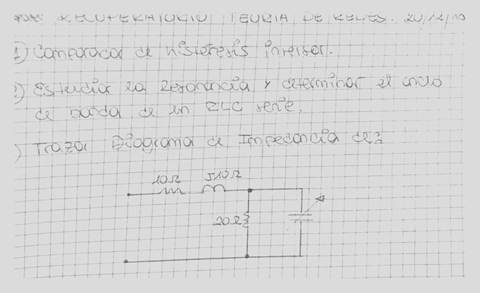 RECUPERATORIO TEORIA DE REDES. 20/12/10
1) Comparador de histéresis inversor.
) Estudiar la Resonancia y determinar el ancho
de banda de un RLC serie.
) Trazar Diagrama de Impedancia de:
10Ω J10Ω
20Ω